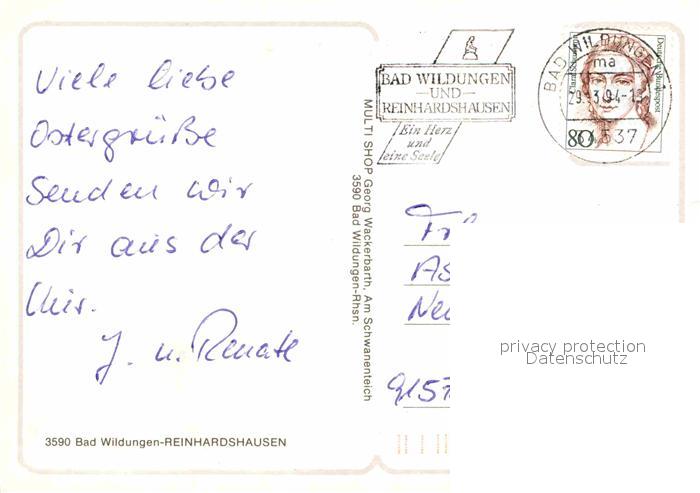 Viele liebe
Ostergrüße
Senden wir
Dir aus der
Kur.
J. u. Renate
3590 Bad Wildungen-REINHARDSHAUSEN
MULTI SHOP Georg Wackerbarth, Am Schwanenteich
3590 Bad Wildungen-Rhsn.
BAD WILDUNGEN
UND
REINHARDSHAUSEN
Ein Herz
und
eine Seele
BAD WILDUNGEN 1
ma
29.-3.94-15
Deutsche Bundespost
80
Fr
As
Neu
9157
privacy protection
Datenschutz